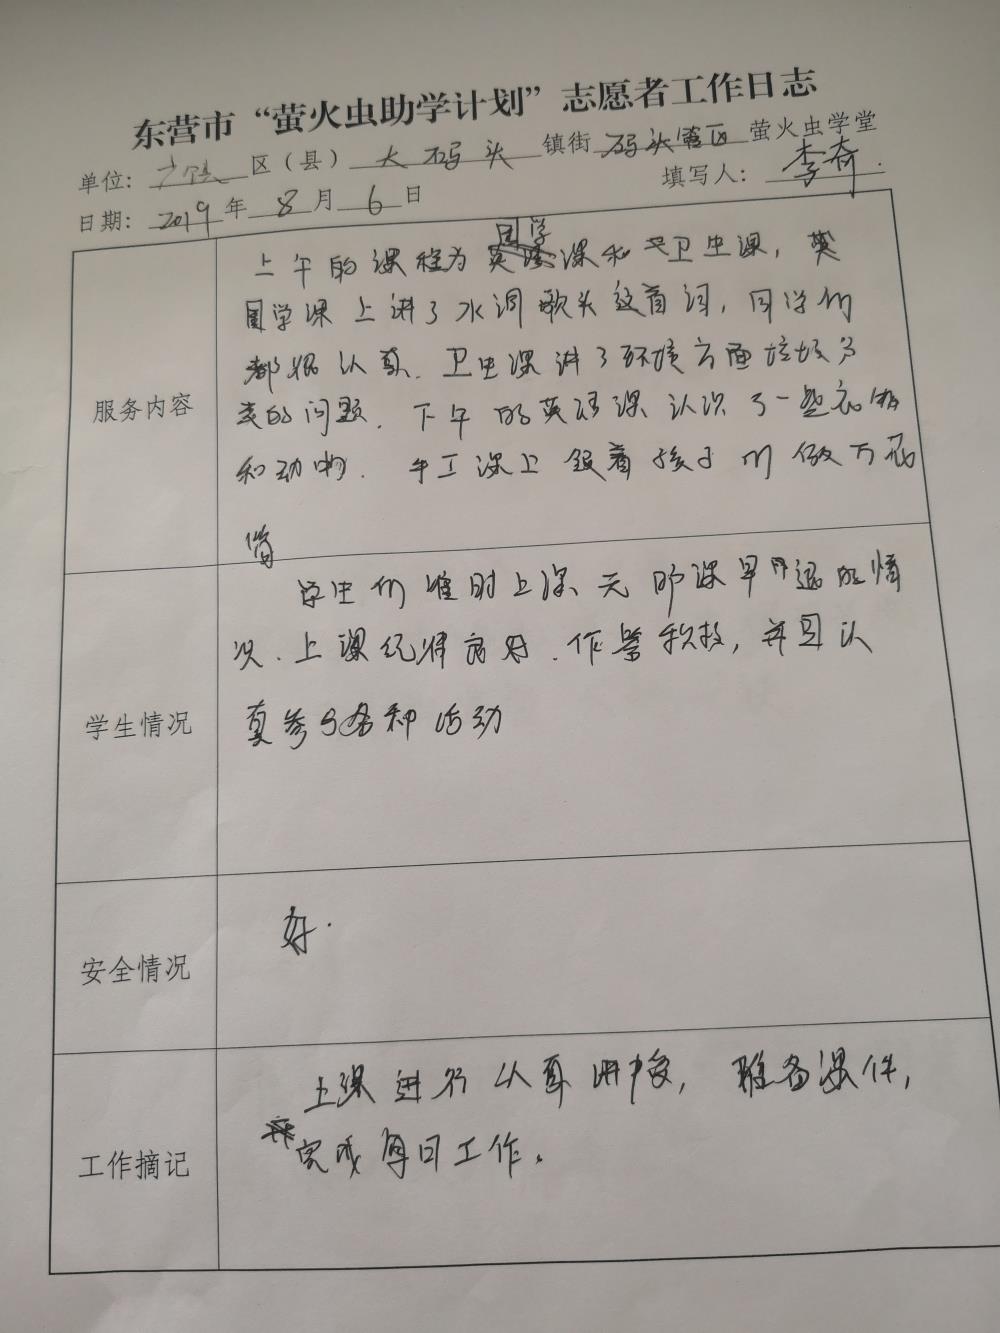 东营市“萤火虫助学计划”志愿者工作日志
单位：广饶 区（县） 大码头 镇街 码头 萤火虫学堂
日期：2019 年 8 月 6 日 填写人：李奇
服务内容
上午的课程为国学课和卫生课，
国学课上讲了水调歌头这首词，同学们
都很认真．卫生课讲了环境方面垃圾分
类的问题．下午的英语课认识了一些衣服
和动物．手工课上领着孩子们做万花
筒
学生情况
学生们准时上课，无旷课早退的情
况．上课纪律良好．作答积极，并且认
真参与各种活动
安全情况
好．
工作摘记
上课进行认真讲授，准备课件，
完成每日工作。